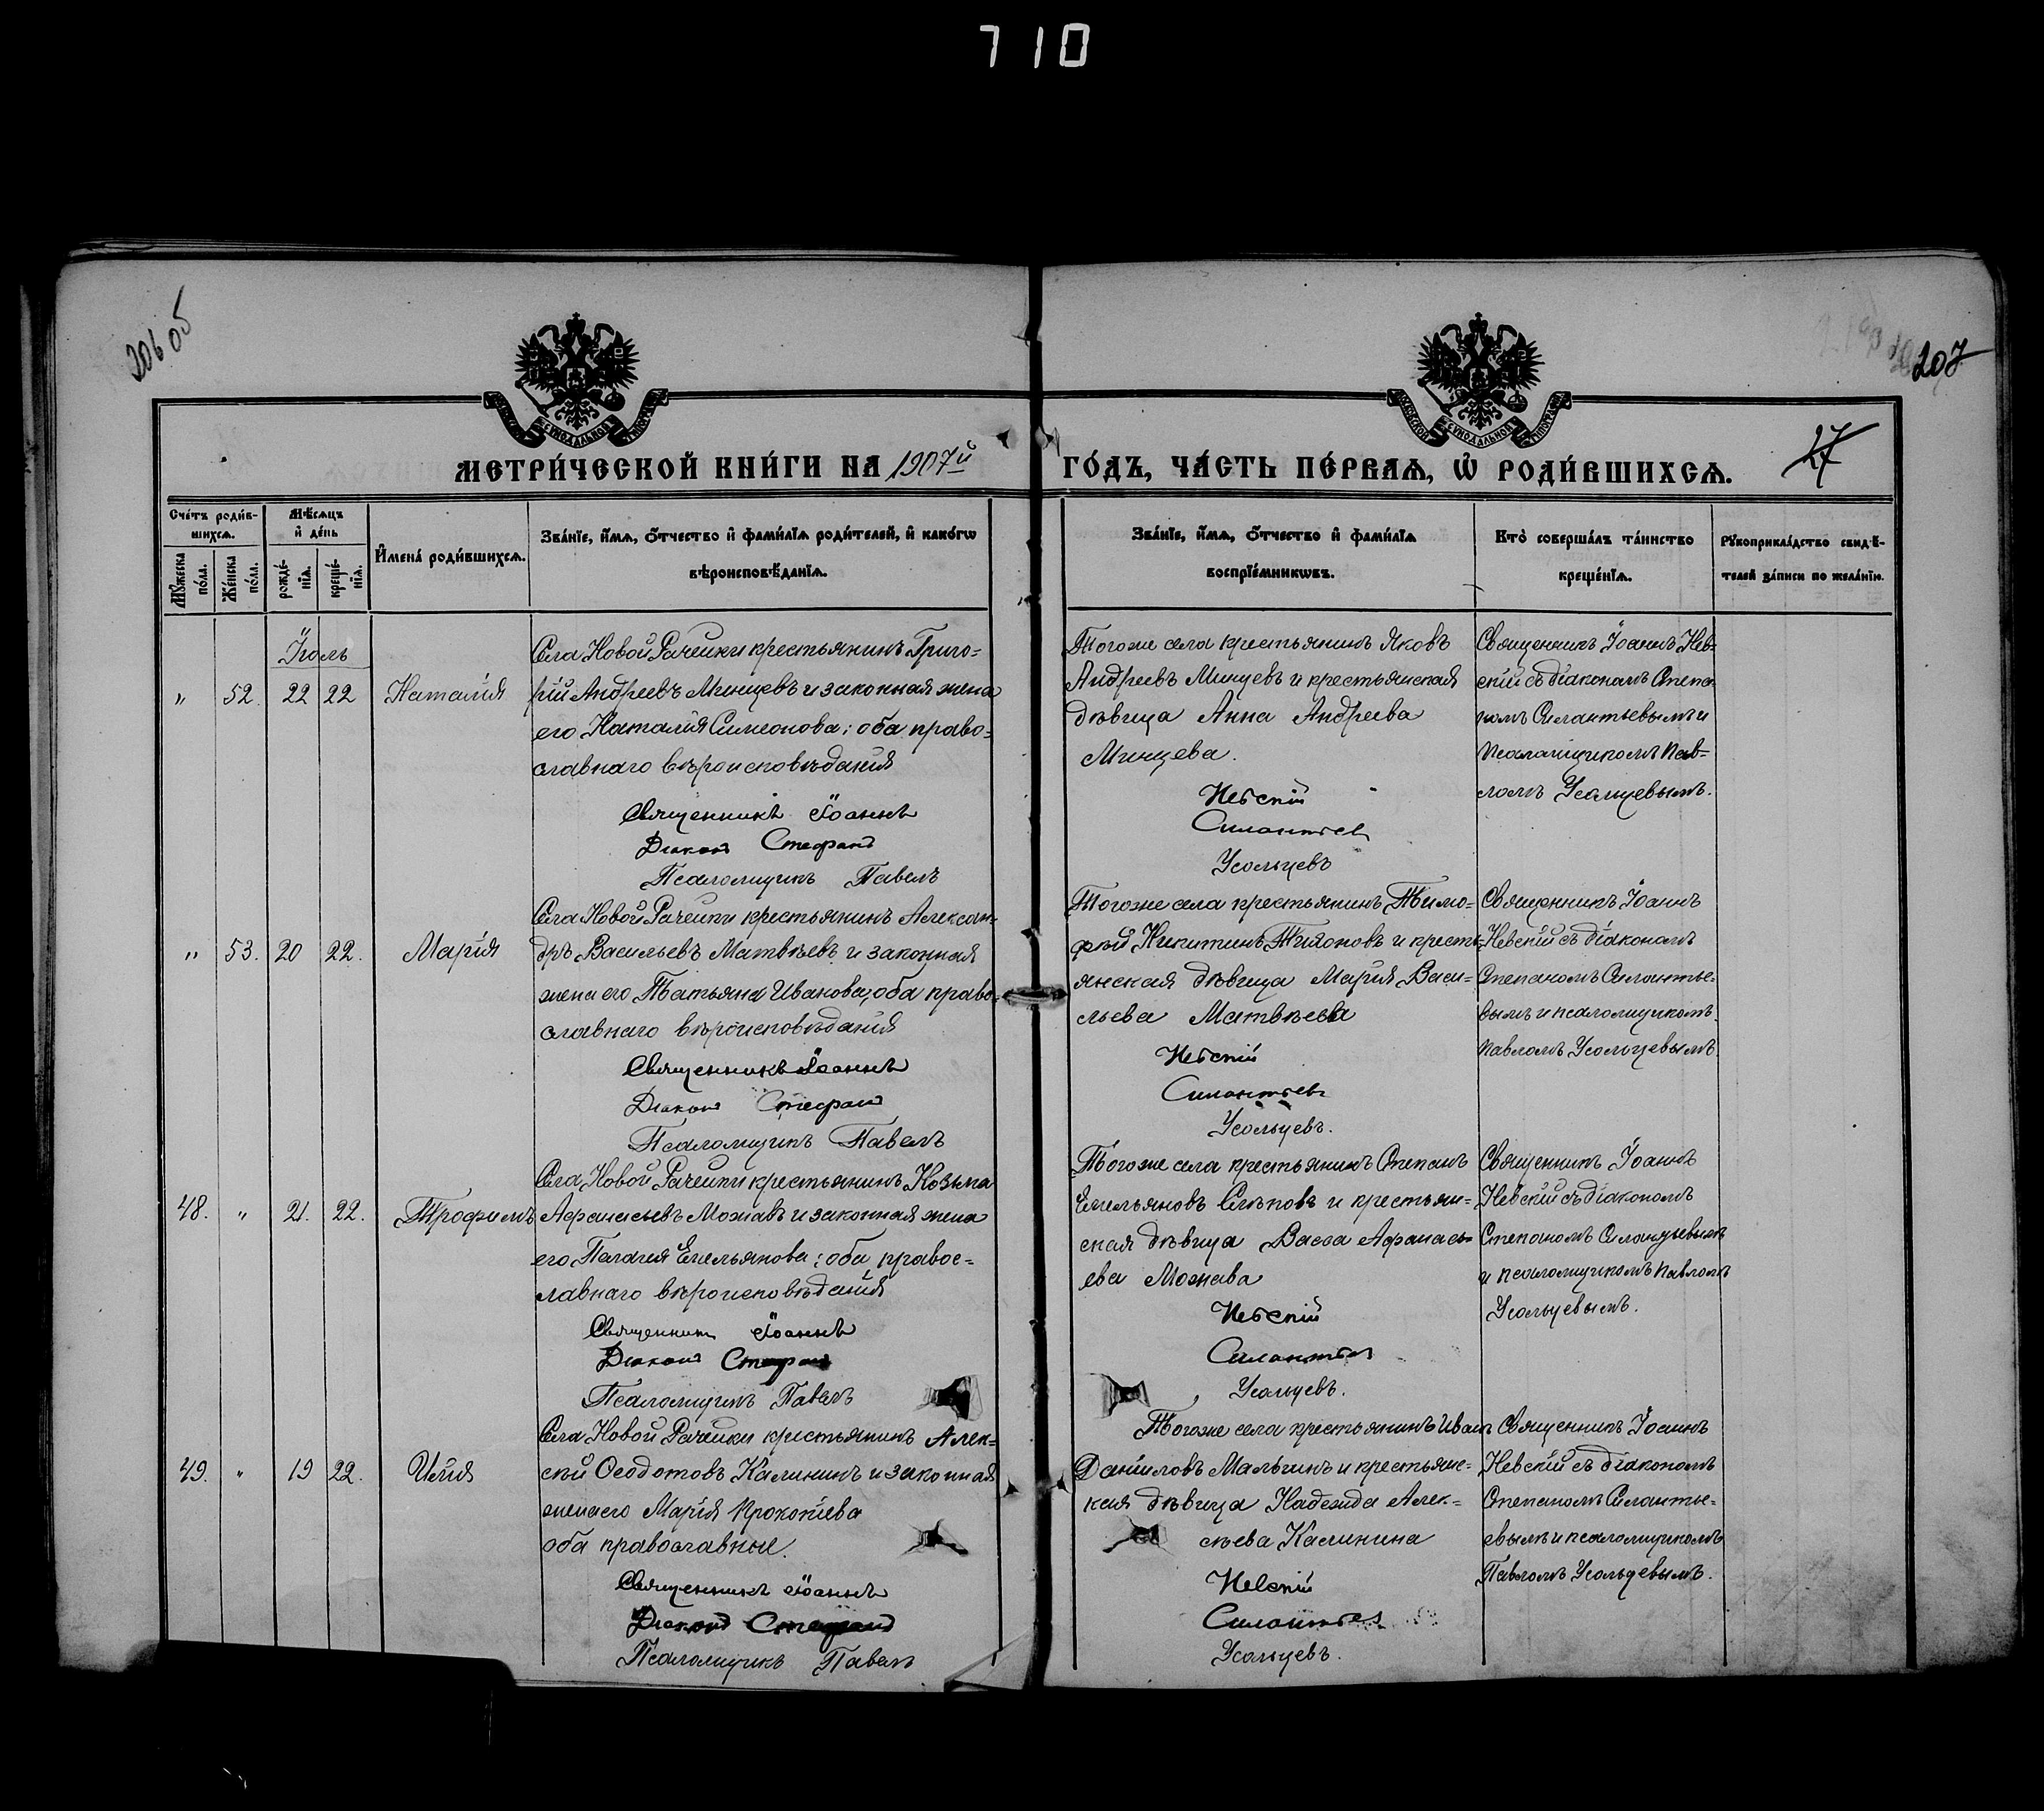 710
206 об
207
27
МЕТРИ́ЧЕСКОЙ КНИ́ГИ НА 1907й ГО́ДЪ, ЧА́СТЬ ПЕ́РВАѦ, Ѡ҆ РОДИ́ВШИХСѦ.
Сче́тъ роди́в-
шихсѧ.
Мѣ́сѧцъ
и҆ де́нь
И҆мена̀ роди́вшихсѧ.
Зва́нїе, и҆́мѧ, ѻ҆́тчество и҆ фами́лїѧ роди́телей, и҆ како́гѡ
вѣроисповѣ́данїѧ.
Мꙋ́жеска
по́ла.
Же́нска
по́ла.
рожде́-
нїѧ.
креще́-
нїѧ.
Зва́нїе, и҆́мѧ, ѻ҆́тчество и҆ фами́лїѧ
воспрїе́мникѡвъ.
Кто̀ соверша́лъ та́инство
креще́нїѧ.
Рꙋкоприкла́дство свидѣ́-
телей за́писи по жела́нїю.
Іюль
„ 52. 22 22 Наталія
Села Новой Рачейки крестьянинъ Григо-
рій Андреевъ Минцевъ и законная жена
его Наталія Симеонова; оба право-
славнаго вѣроисповѣданія
Священникъ Іоаннъ
Діаконъ Стефанъ
Псаломщикъ Павелъ
Тогоже села крестьянинъ Яковъ
Андреевъ Минцевъ и крестьянская
дѣвица Анна Андреева
Минцева.
Невскій
Силантьев
Усольцевъ
Священникъ Іоаннъ Нев-
скій съ діаконамъ Степа-
номъ Силантьевымъ и
псаломщикомъ Пав-
ломъ Усольцевымъ.
„ 53. 20 22. Марія
Села Новой Рачейки крестьянинъ Алексан-
дръ Васильевъ Матвѣевъ и законная
жена его Татьяна Иванова, оба право-
славнаго вѣроисповѣданія
Священникъ Іоаннъ
Діаконъ Стефан
Псаломщикъ Павелъ
Тогоже села крестьянинъ Тимо-
фей Никитинъ Тихоновъ и кресть-
янская дѣвица Марія Васи-
льева Матвѣева
Невскій
Силантьев
Усольцевъ.
Священникъ Іоаннъ
Невскій съ діаконамъ
Степаномъ Силантье-
вымъ и псаломщикомъ
Павломъ Усольцевымъ.
48. „ 21. 22. Трофимъ
Села Новой Рачейки крестьянинъ Козьма
Афанасьевъ Можавъ и законная жена
его Пелагия Емельянова; оба правос-
лавнаго вѣроисповѣданія
Священникъ Іоаннъ
Діаконъ Стефанъ
Псаломщикъ Павелъ
Тогоже села крестьянинъ Степанъ
Емельяновъ Слѣповъ и крестьян-
ская дѣвица Васса Афанась-
ева Можава
Невскій
Силантьев
Усольцевъ.
Священникъ Іоаннъ
Невскій съ діакономъ
Степаномъ Силантьевымъ
и псаломщикомъ Павломъ
Усольцевымъ.
49. „ 19 22. Илія
Села Новой Рачейки крестьянинъ Алек-
сѣй Ѳеодотовъ Калининъ и законная
жена его Марія Прокопіева
оба православные.
Священникъ Іоаннъ
Діаконъ Стефанъ
Псаломщикъ Павелъ
Тогоже села крестьянинъ Иванъ
Даніиловъ Малыгинъ и крестьянс-
кая дѣвица Надежда Алек-
сѣева Калинина
Невскій
Силантьев
Усольцевъ.
Священникъ Іоаннъ
Невскій съ діакономъ
Степаномъ Силантье-
евымъ и псаломщикомъ
Павломъ Усольцевымъ.